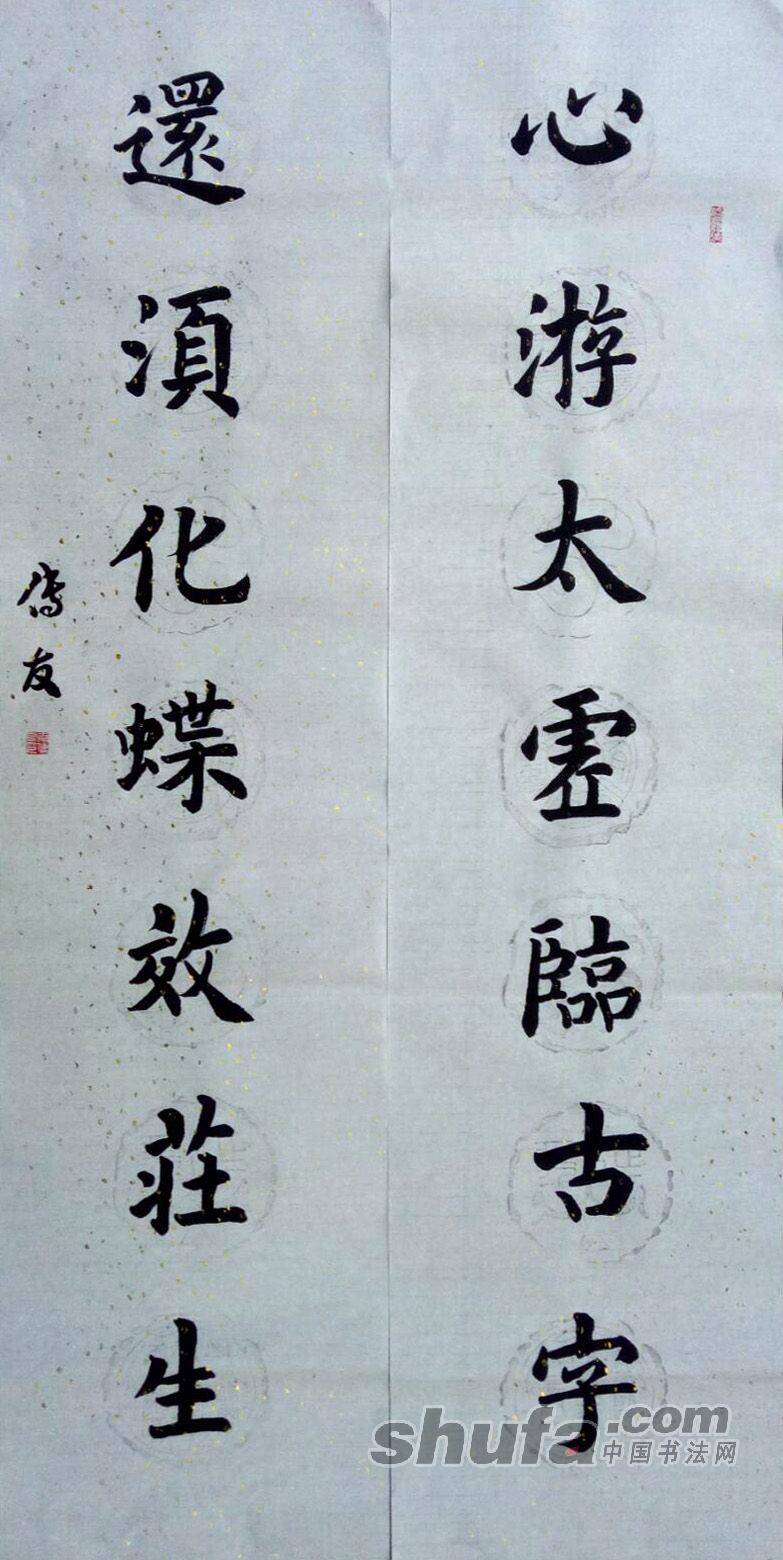 心游太虛臨古字
還須化蝶效莊生
shufa.com
中国书法网